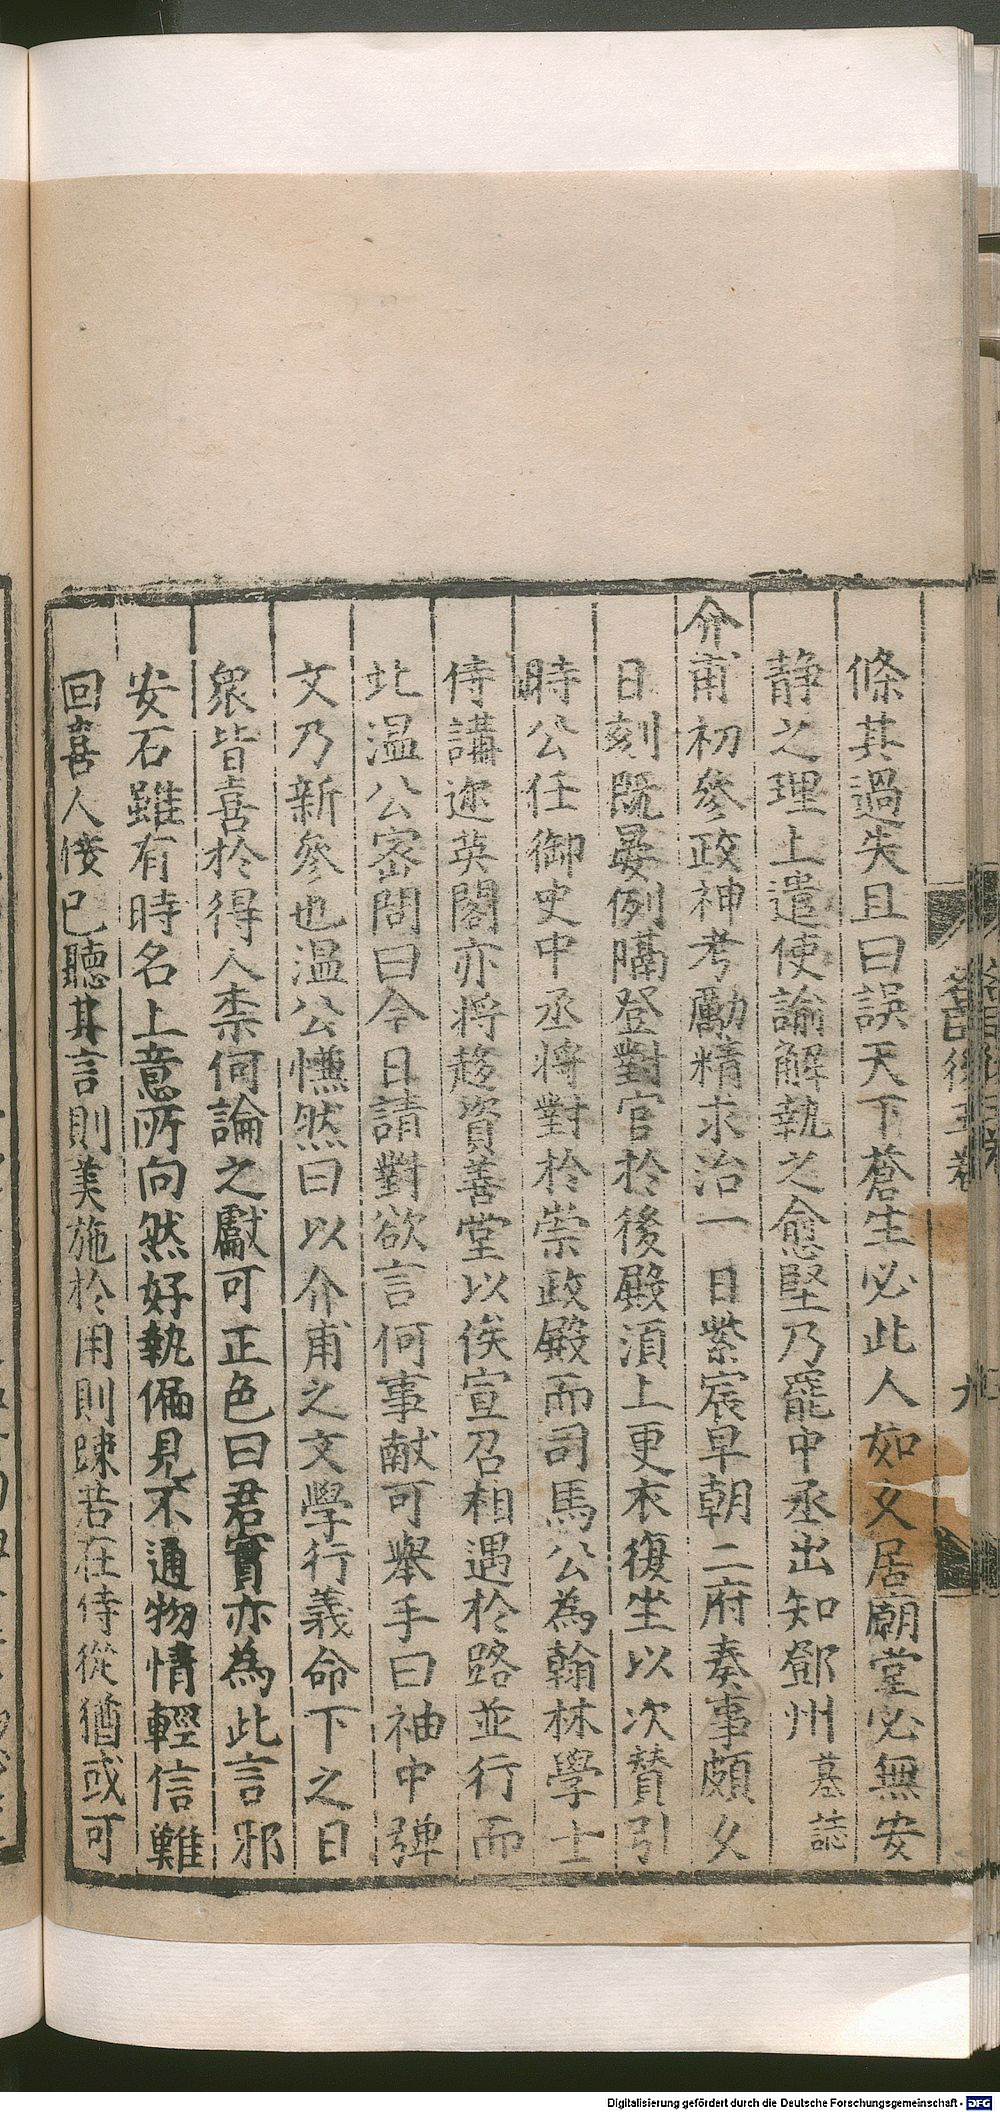 條其過失且曰誤天下蒼生必此人如久居廟堂必無安
靜之理上遣使諭解執之愈堅乃罷中丞出知鄧州墓誌
介甫初參政神考勵精求治一日紫宸早朝二府奏事頗久
日刻既晏例隔登對官於後殿須上更衣復坐以次賛引
時公任御史中丞將對於崇政殿而司馬公為翰林學士
侍講迩英閣亦将趍資善堂以俟宣召相遇於路並行而
北温公宻問曰今日請對欲言何事献可舉手曰袖中弾
文乃新參也温公愕然曰以介甫之文學行義命下之日
衆皆喜於得人柰何論之獻可正色曰君實亦為此言邪
安石雖有時名上意所向然好執偏見不通物情輕信難
回喜人佞己聽其言則美施於用則踈若在侍從猶或可
後五卷
九
Digitalisierung gefördert durch die Deutsche Forschungsgemeinschaft - DFG